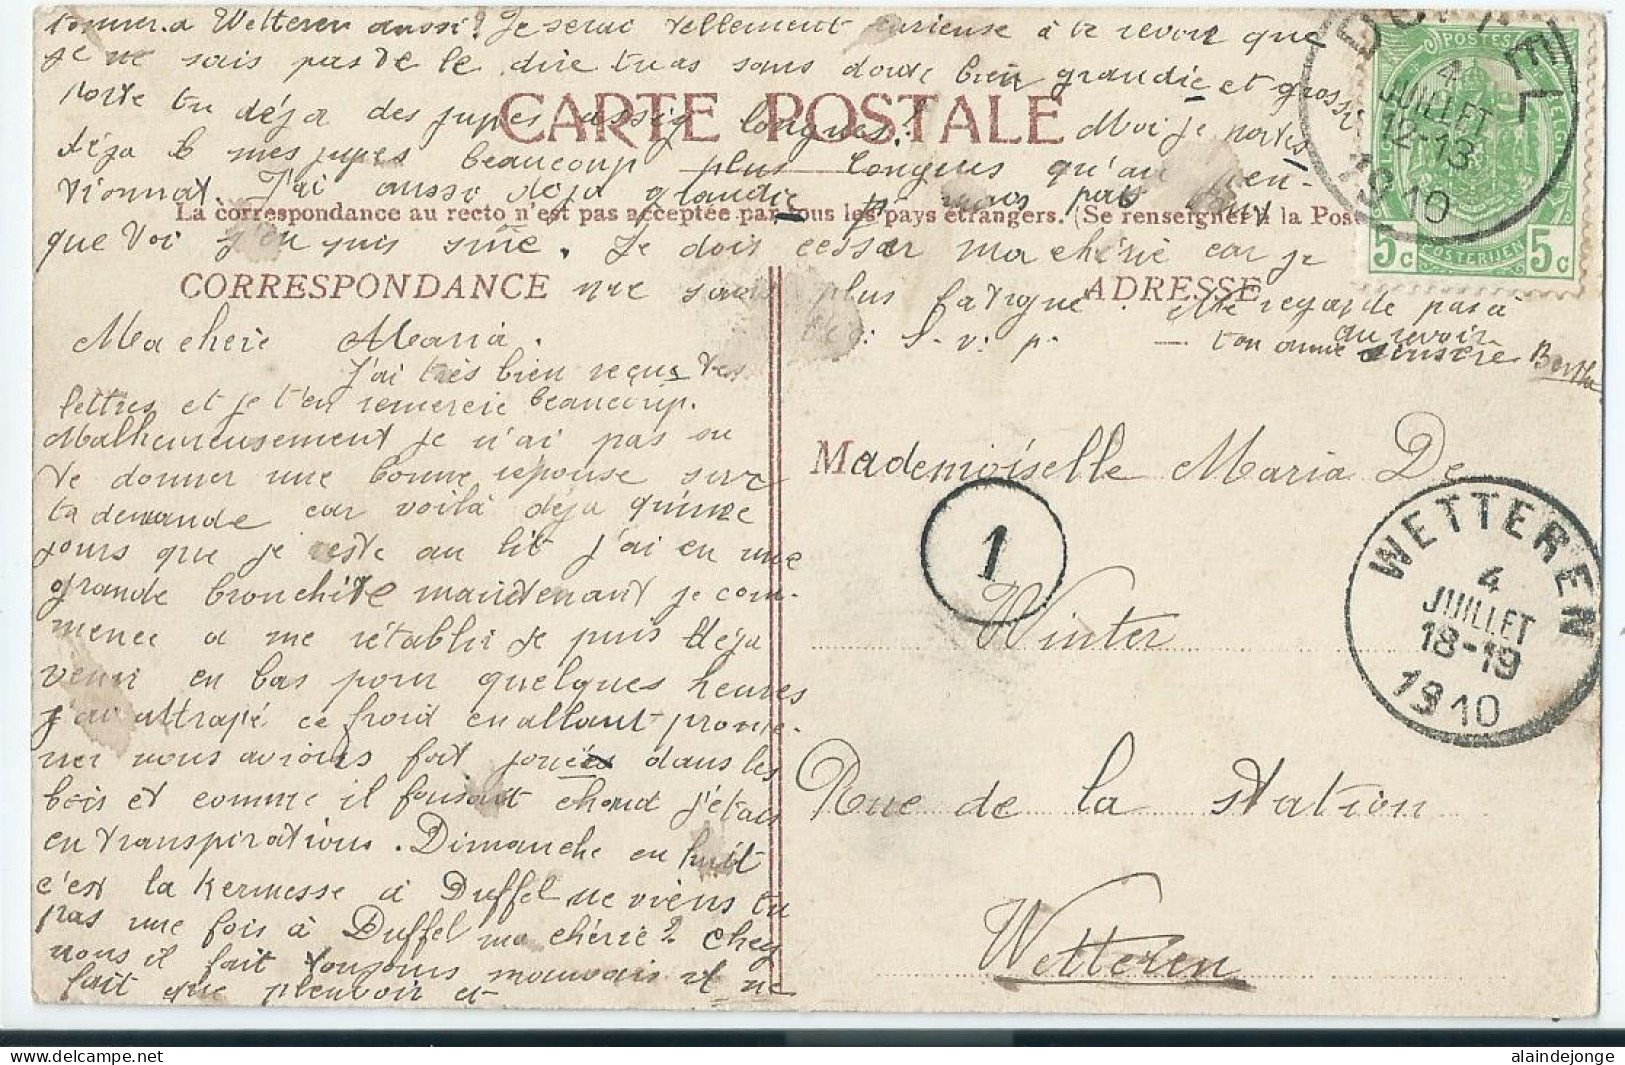 tonner a Wetteren aussi? Je serai tellement curieuse à te revoir que
je ne sais pas te le dire tu as sans doute bien grandie et grossi
Porte tu déja des jupes assig longues? Moi je portes
CARTE POSTALE
déja b mes jupes beaucoup plus longues qu'au Pen-
tionnat. J'ai aussi deja grandie
La correspondance au recto n'est pas acceptée par tous les pays étrangers. (Se renseigner à la Poste
que toi j'en suis sûre. Je dois cesser ma chérie car je
CORRESPONDANCE
ADRESSE
me sens plus fatigué. Ne regarde pas à
S. v. p.
au revoir
ton amie sinsère Berthe
Ma cheré Maria.
J'ai très bien reçus tes
lettres et je t'en remercie beaucoup.
Malheureusement je n'ai pas su
te donner une bonne reponse sur
ta demande car voilà déja quinze
jours que je reste au lit j'ai eu une
grande bronchite maintenant je com-
mence a me rétablir je puis déja
venir en bas pour quelques heures
j'ai attrapé ce froid en allant prome-
ner nous avions fort jouées dans les
bois et comme il faisait chaud j'étais
en transpirations. Dimanche en huit
c'est la Kermesse à Duffel ne viens tu
pas une fois à Duffel ma chérie? Chez
nous il fait toujours mauvais il ne
fait que pleuvoir et
Mademoiselle Maria De
Winter
Rue de la station
Wetteren
1
DUFFEL
4
JUILLET
12-13
1910
POSTES
POSTERIJEN
5c 5c
WETTEREN
4
JUILLET
18-19
1910
alaindejonge